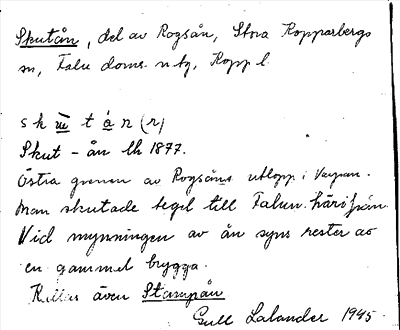 Skutån, del av Rogsån, Stora Kopparbergs
sn, Falu doms. ntg, Kopp l.
Skut-ån lk 1877.
Östra grenen av Rogsåns utlopp i Varpan.
Man skutade tegel till Falun härifrån
Vid mynningen av ån syns rester av
en gammal brygga.
Kallas även Stampån
Gull Lalander 1945.